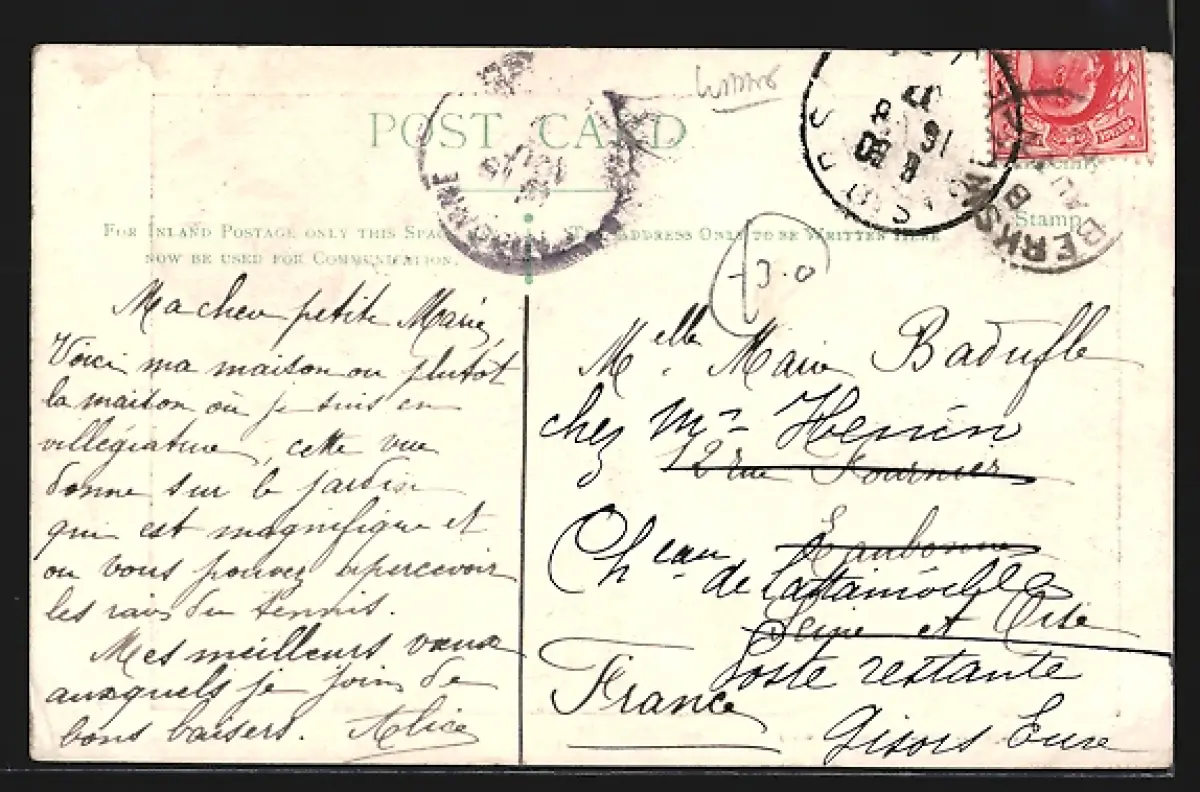 POST CARD
FOR INLAND POSTAGE ONLY THIS SPACE
NOW BE USED FOR COMMUNICATION.
THE ADDRESS ONLY TO BE WRITTEN HERE
Stamp
BERKS
13.0
Ma chere petite Marie,
Voici ma maison ou plutôt
la maison où je suis en
villégiature, cette vue
donne sur le jardin
qui est magnifique et
ou vous pouvez apercevoir
les raies du tennis.
Mes meilleurs vœux
auxquels je joins de
bons baisers. Alice
Melle. Marie Badufle
chez Mr Henin
12 rue Fournier
Eaubonne
Cheau de
Seine et Oise
Poste restante
France
Gisors Eure